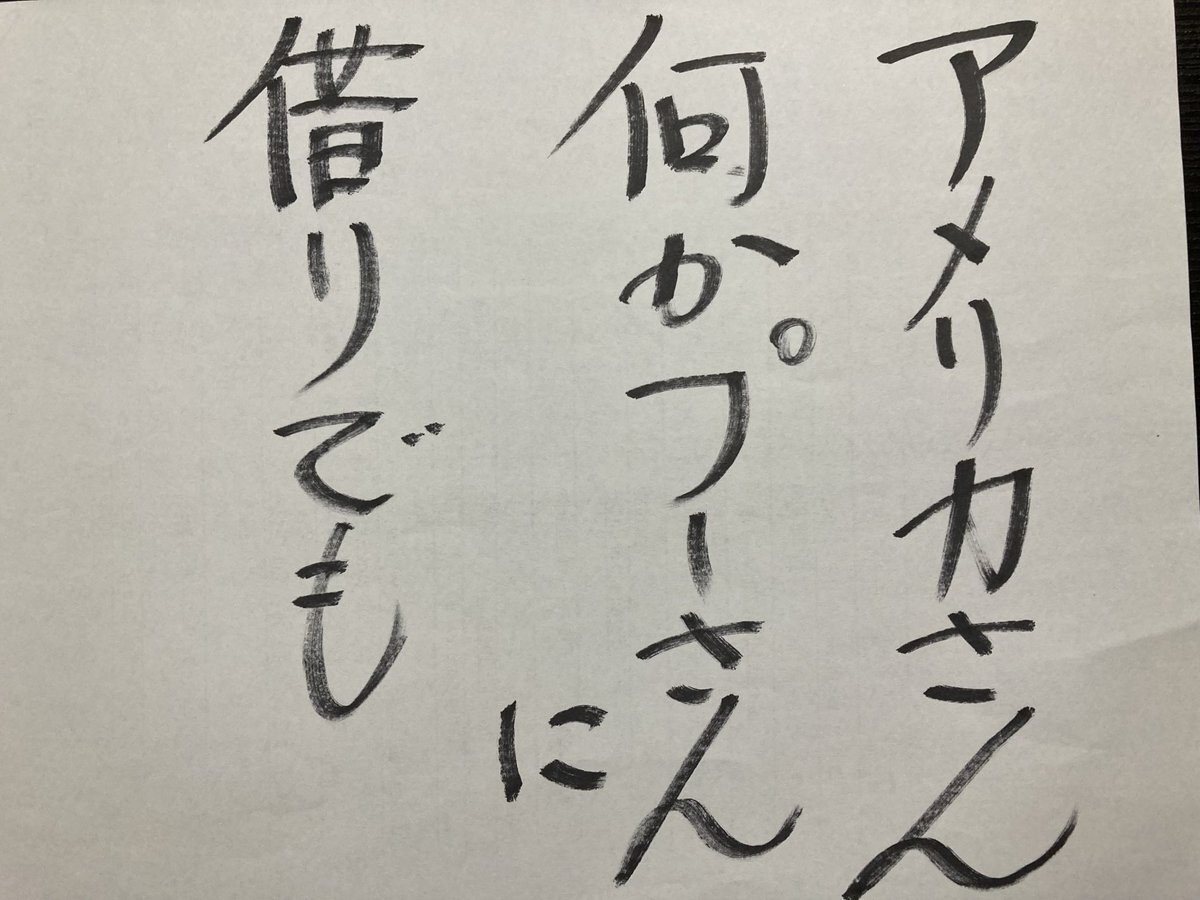 アメリカさん
何かプーさんに
借りでも